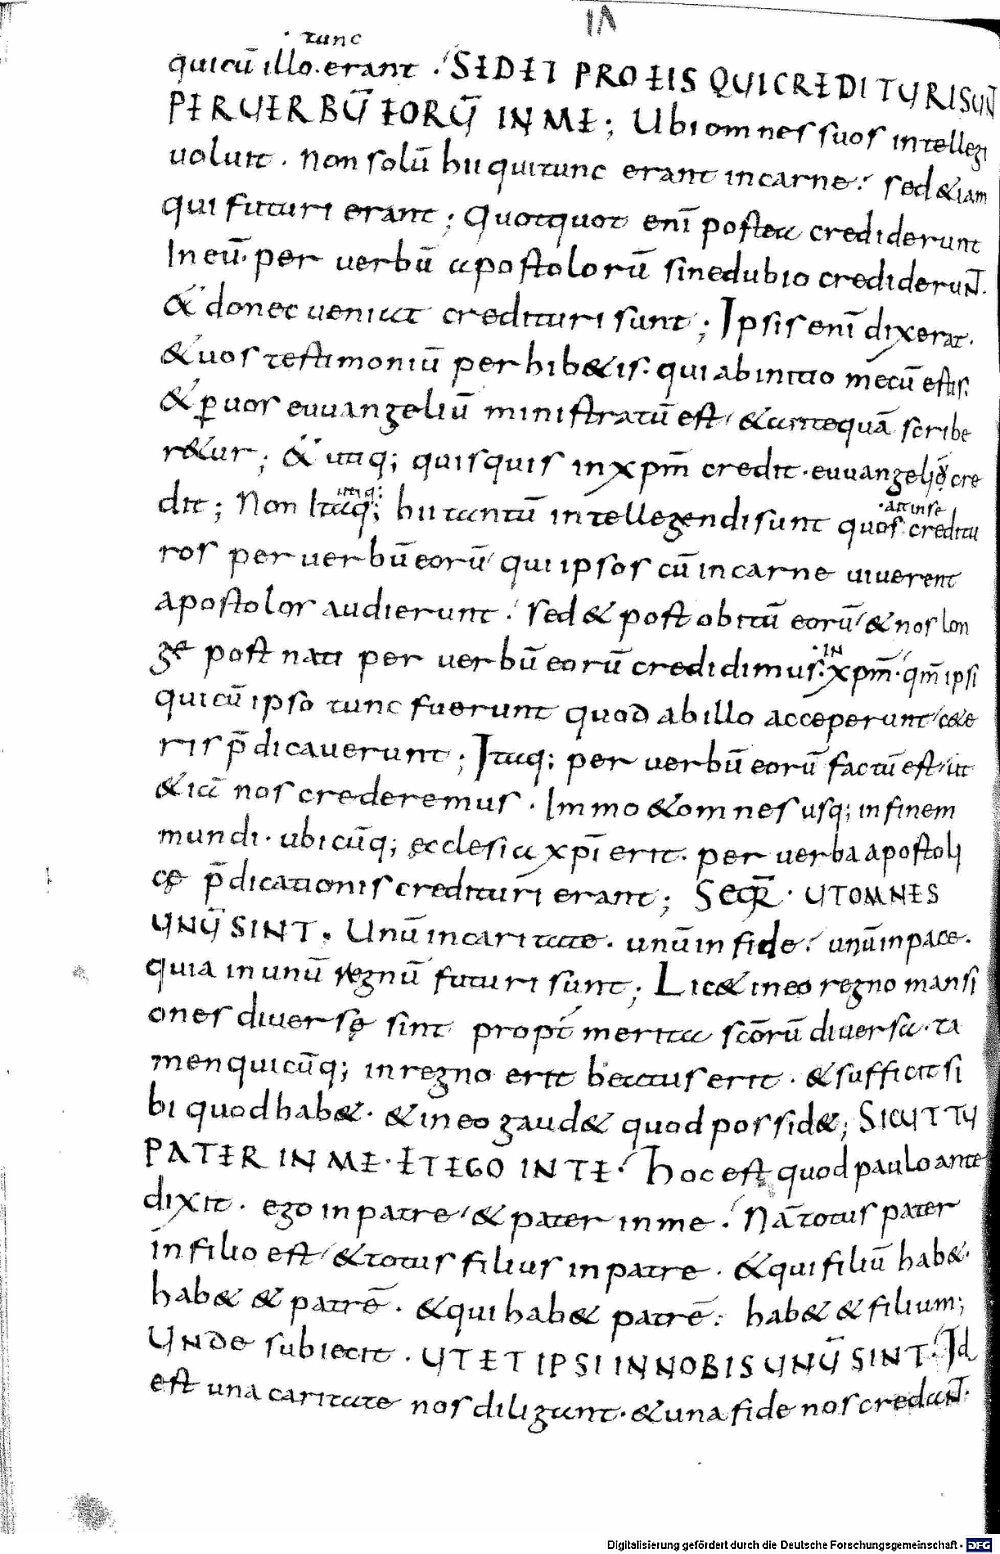 tunc
quicū illo. erant . SED ET PRO EIS QUI CREDITURI SUNT
PER UERBŪ EORŪ IN ME; Ubi omnes suos intellegi
uoluit . Non solū hii qui tunc erant in carne . sed & iam
qui futuri erant ; Quotquot enī postea crediderunt
In eū . per uerbū apostolorū sine dubio crediderunt.
& donec ueniat credituri sunt ; Ipsis enī dixerat .
& uos testimoniū perhib&is . qui ab initio mecū estis.
& ꝑ uos euuangeliū ministratū est & antequā scribe
r&ur ; & utiq; quisquis in xpm̄ credit . euuangelio cre
dit ; Non Itaq; hii tantū intellegendi sunt quos creditu
ros per uerbū eorū qui ipsos cū in carne uiuerent
apostolos audierunt . sed & post obitū eorū & nos lon
ge post nati per uerbū eorū credidimus . IN xpm̄ . qm̄ ipsi
qui cū ipso tunc fuerunt quod ab illo acceperunt c&e
ris p̄dicauerunt ; Itaq; per uerbū eorū factū est ut
& iā nos crederemus . Immo & omnes usq; in finem
mundi . ubicūq; ęcclesia xpī erit . per uerba apostoli
cę p̄dicationis credituri erant ; SEQR̄ . UT OMNES
UNŪ SINT . Unū in caritate . unū in fide . unū in pace .
quia in unū regnū futuri sunt ; Lic& in eo regno mansi
ones diuersę sint propt̄ merita scōrū diuersa . ta
men quicūq; in regno erit beatus erit . & sufficit si
bi quod hab& . & in eo gaud& quod possid& ; SICUT TU
PATER IN ME . ET EGO IN TE . Hoc est quod paulo ante
dixit . ego in patre & pater in me . Nā totus pater
in filio est & totus filius in patre . & qui filiū hab& .
hab& & patrē . & qui hab& patrē . hab& & filium ;
UNde subiecit . UT ET IPSI IN NOBIS UNŪ SINT . Id
est una caritate nos diligant . & una fide nos credant .
Digitalisierung gefördert durch die Deutsche Forschungsgemeinschaft - DFG